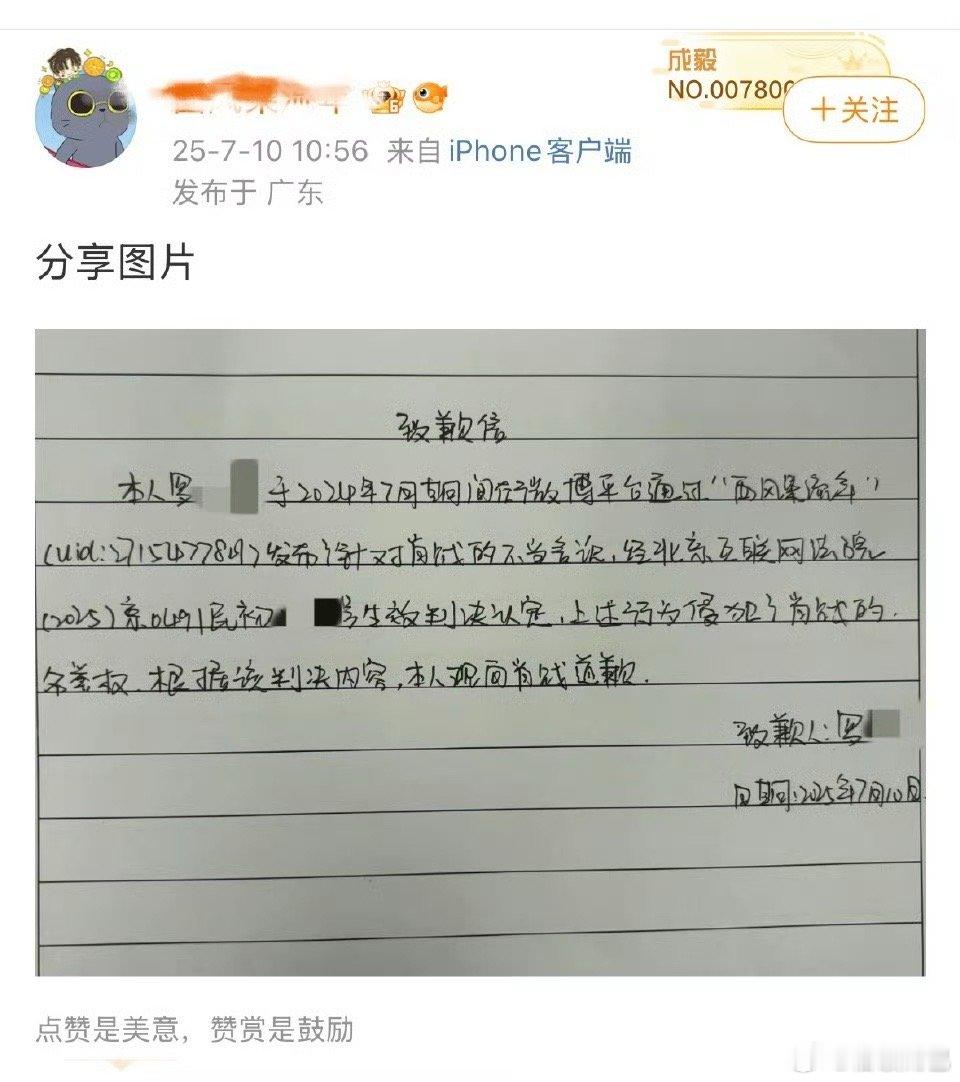 成毅
NO.007800
+关注
25-7-10 10:56 来自 iPhone客户端
发布于 广东
分享图片
致歉信
本人罗 于2024年7月期间在微博平台通过“西风果流年”
(uid:2715477849)发布了针对肖战的不当言论,经北京互联网法院
(2025)京0491民初 号生效判决认定,上述行为侵犯了肖战的
名誉权.根据该判决内容,本人现向肖战道歉.
致歉人:罗
日期:2025年7月10日
点赞是美意，赞赏是鼓励